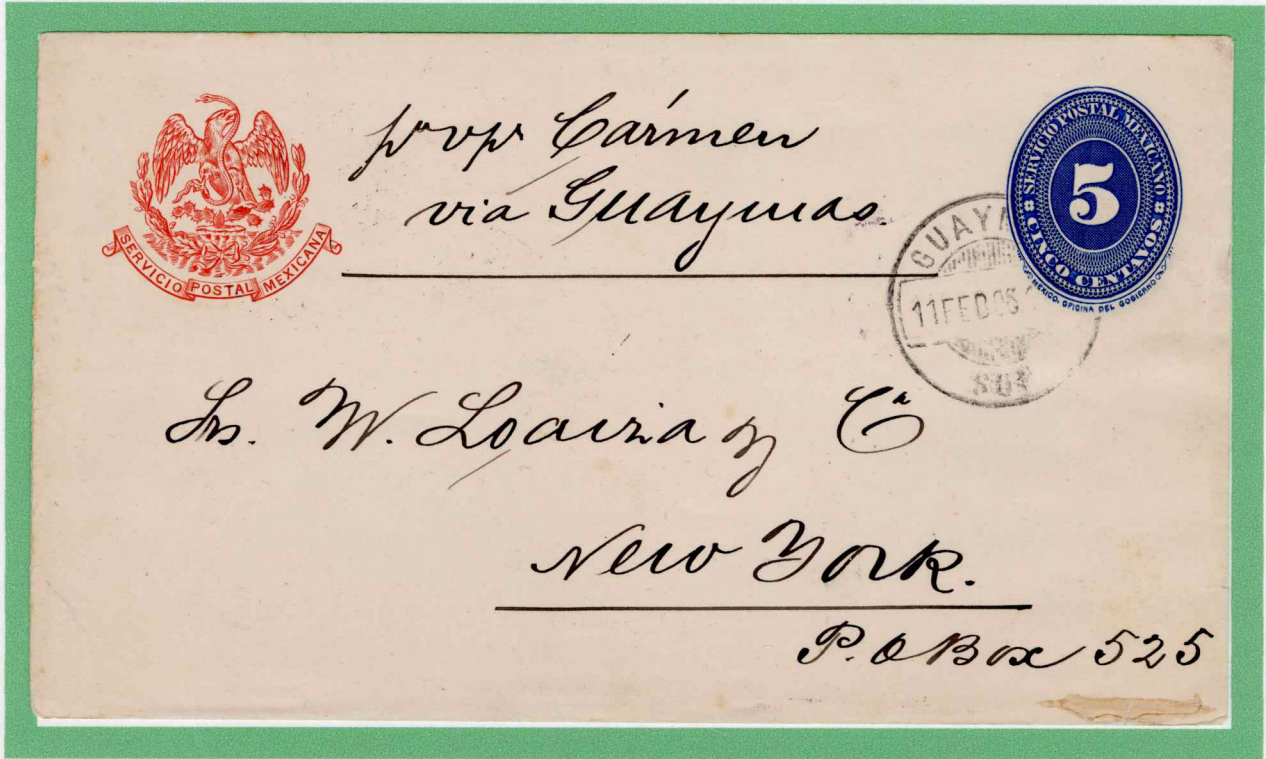 SERVICIO POSTAL MEXICANA
pr vpr Cármen
via Guaymas.
SERVICIO POSTAL MEXICANO
5
CINCO CENTAVOS
MEXICO. OFICINA DEL GOBIERNO
GUAYM
11 FEB
Srs. W. Loaiza y Cª
New York.
P.O Box 525